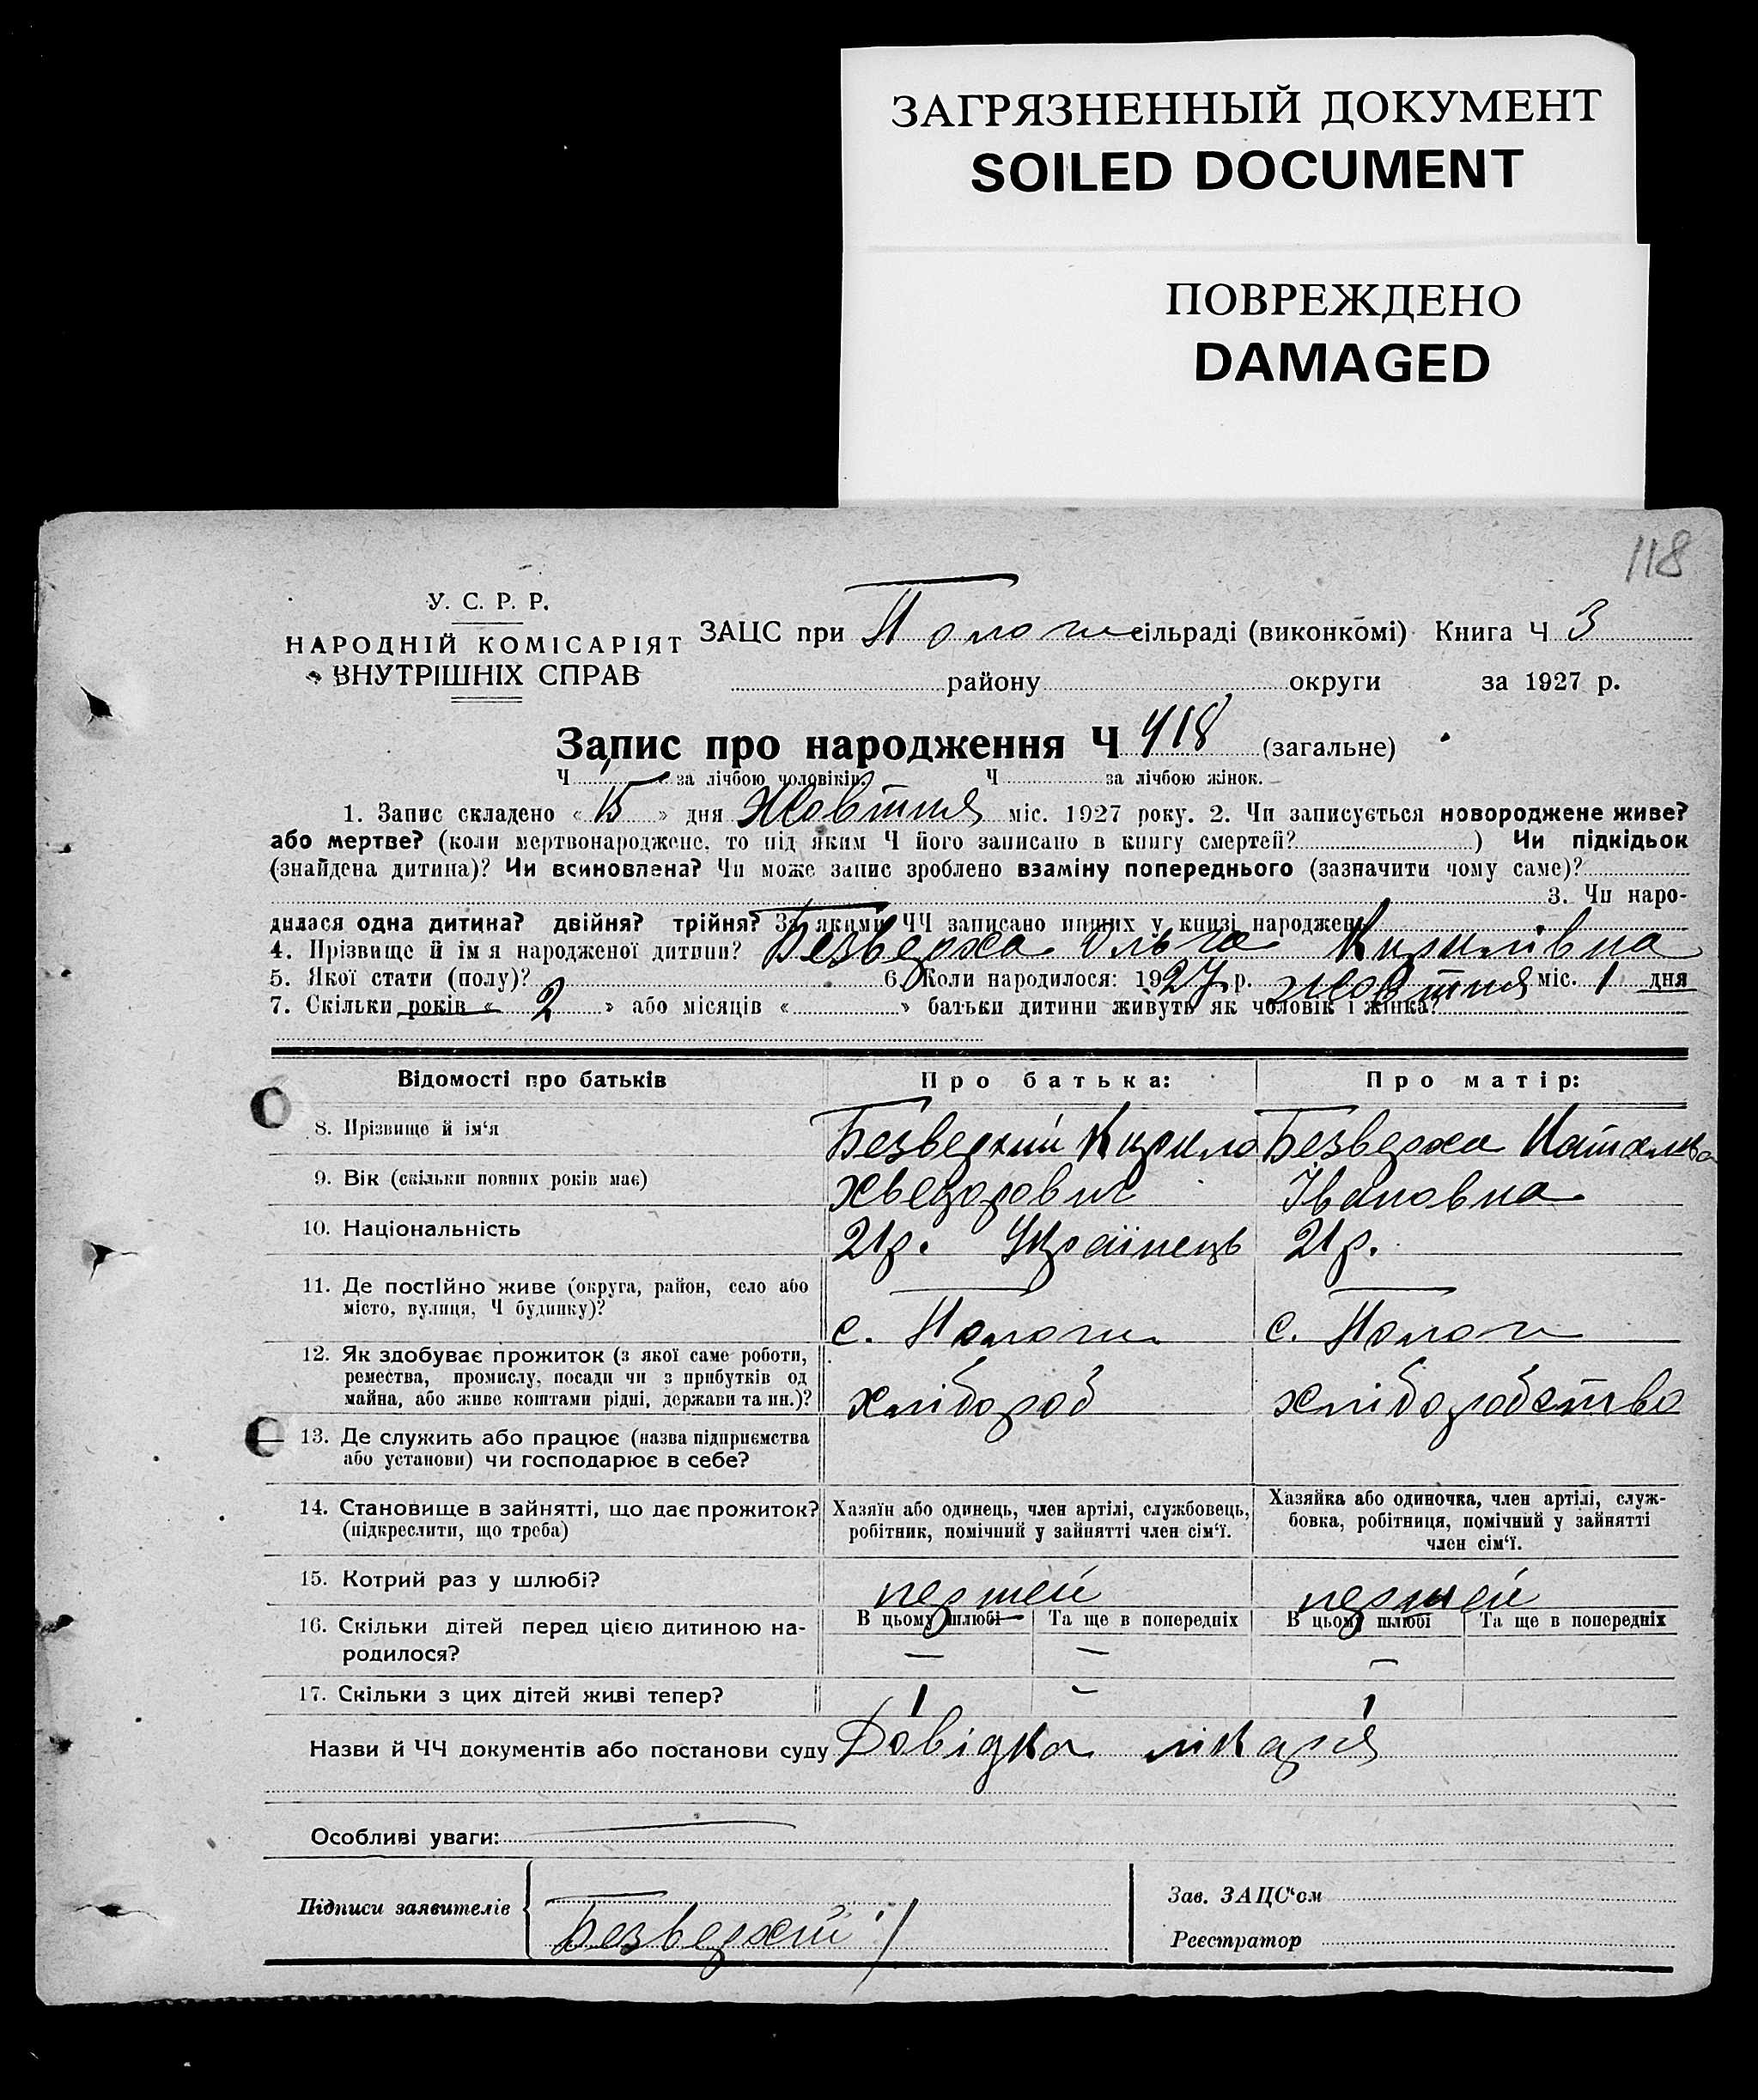 ЗАГРЯЗНЕННЫЙ ДОКУМЕНТ
SOILED DOCUMENT
ПОВРЕЖДЕНО
DAMAGED
118
У. С. Р. Р.
НАРОДНІЙ КОМІСАРІЯТ
ВНУТРІШНІХ СПРАВ
ЗАЦС при Пологи сільраді (виконкомі) Книга Ч 3
району округи за 1927 р.
Запис про народження Ч 418 (загальне)
Ч за лічбою чоловіків. Ч за лічбою жінок.
1. Запис складено « 15 » дня Жовтня міс. 1927 року. 2. Чи записується новороджене живе?
або мертве? (коли мертвонароджене, то під яким Ч його записано в книгу смертей? ) Чи підкідьок
(знайдена дитина)? Чи всиновлена? Чи може запис зроблено взаміну попереднього (зазначити чому саме)?
3. Чи наро-
дилася одна дитина? двійня? трійня? За якими ЧЧ записано инших у книзі народжень
4. Прізвище й ім я народженої дитини? Безверха Ольга Кирилівна
5. Якої стати (полу)? 6. Коли народилося: 1927 р. Жовтня міс. 1 дня
7. Скільки років « 2 » або місяців « » батьки дитини живуть як чоловік і жінка?
Відомості про батьків Про батька: Про матір:
8. Прізвище й ім‘я Безверхий Кирило Безверха Наталка
9. Вік (скільки повних років має) Хведорович Івановна
10. Національність 21р. Українець 21р.
11. Де постійно живе (округа, район, село або
місто, вулиця, Ч будинку)? с. Пологи с. Пологи
12. Як здобуває прожиток (з якої саме роботи,
ремества, промислу, посади чи з прибутків од
майна, або живе коштами рідні, держави та ин.)? хлібороб хліборобство
13. Де служить або працює (назва підприємства
або установи) чи господарює в себе?
14. Становище в зайнятті, що дає прожиток?
(підкреслити, що треба)
Хазяїн або одинець, член артілі, службовець,
робітник, помічний у зайнятті член сім‘ї.
Хазяйка або одиночка, член артілі, служ-
бовка, робітниця, помічний у зайнятті
член сім‘ї.
15. Котрий раз у шлюбі? першей першей
16. Скільки дітей перед цією дитиною на-
родилося?
В цьому шлюбі Та ще в попередніх В цьому шлюбі Та ще в попередніх
— — —
17. Скільки з цих дітей живі тепер? 1 – 1
Назви й ЧЧ документів або постанови суду Довідка лікаря
Особливі уваги:
Підписи заявителів
Безверхий
Зав. ЗАЦС‘ом
Реєстратор